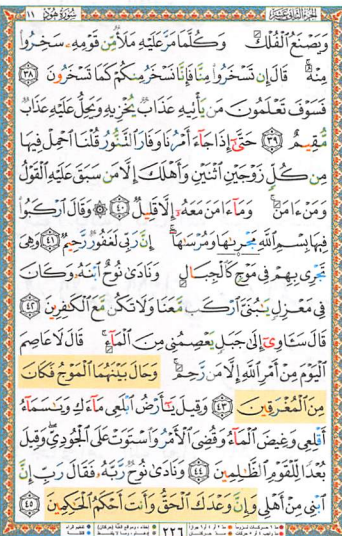 الجزء الثاني عشر سورة هود ١١
وَيَصْنَعُ الْفُلْكَ وَكُلَّمَا مَرَّ عَلَيْهِ مَلَأٌ مِّن قَوْمِهِ سَخِرُوا
مِنْهُ قَالَ إِن تَسْخَرُوا مِنَّا فَإِنَّا نَسْخَرُ مِنكُمْ كَمَا تَسْخَرُونَ ٣٨
فَسَوْفَ تَعْلَمُونَ مَن يَأْتِيهِ عَذَابٌ يُخْزِيهِ وَيَحِلُّ عَلَيْهِ عَذَابٌ
مُّقِيمٌ ٣٩ حَتَّىٰ إِذَا جَاءَ أَمْرُنَا وَفَارَ التَّنُّورُ قُلْنَا احْمِلْ فِيهَا
مِن كُلٍّ زَوْجَيْنِ اثْنَيْنِ وَأَهْلَكَ إِلَّا مَن سَبَقَ عَلَيْهِ الْقَوْلُ
وَمَنْ ءَامَنَ وَمَا ءَامَنَ مَعَهُ إِلَّا قَلِيلٌ ٤٠ ۞ وَقَالَ ارْكَبُوا
فِيهَا بِسْمِ اللَّهِ مَجْرٰىهَا وَمُرْسَىٰهَا إِنَّ رَبِّي لَغَفُورٌ رَّحِيمٌ ٤١ وَهِيَ
تَجْرِي بِهِمْ فِي مَوْجٍ كَالْجِبَالِ وَنَادَىٰ نُوحٌ ابْنَهُ وَكَانَ
فِي مَعْزِلٍ يَٰبُنَيَّ ارْكَب مَّعَنَا وَلَا تَكُن مَّعَ الْكَٰفِرِينَ ٤٢
قَالَ سَـَٔاوِي إِلَىٰ جَبَلٍ يَعْصِمُنِي مِنَ الْمَاءِ قَالَ لَا عَاصِمَ
الْيَوْمَ مِنْ أَمْرِ اللَّهِ إِلَّا مَن رَّحِمَ وَحَالَ بَيْنَهُمَا الْمَوْجُ فَكَانَ
مِنَ الْمُغْرَقِينَ ٤٣ وَقِيلَ يَٰأَرْضُ ابْلَعِي مَاءَكِ وَيَٰسَمَاءُ
أَقْلِعِي وَغِيضَ الْمَاءُ وَقُضِيَ الْأَمْرُ وَاسْتَوَتْ عَلَى الْجُودِيِّ وَقِيلَ
بُعْدًا لِّلْقَوْمِ الظَّٰلِمِينَ ٤٤ وَنَادَىٰ نُوحٌ رَّبَّهُ فَقَالَ رَبِّ إِنَّ
ابْنِي مِنْ أَهْلِي وَإِنَّ وَعْدَكَ الْحَقُّ وَأَنتَ أَحْكَمُ الْحَٰكِمِينَ ٤٥
٢٢٦